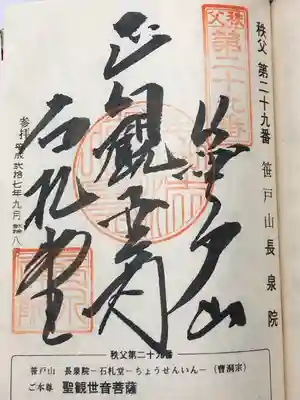 秩父 第二十九番 笹戸山長泉院
秩父
第二十九番
笹戸山
正観世音
石札堂
参拝 平成 弐拾七年九月
秩父第二十九番
笹戸山 長泉院－石札堂－ちょうせんいん－(曹洞宗)
ご本尊 聖観世音菩薩